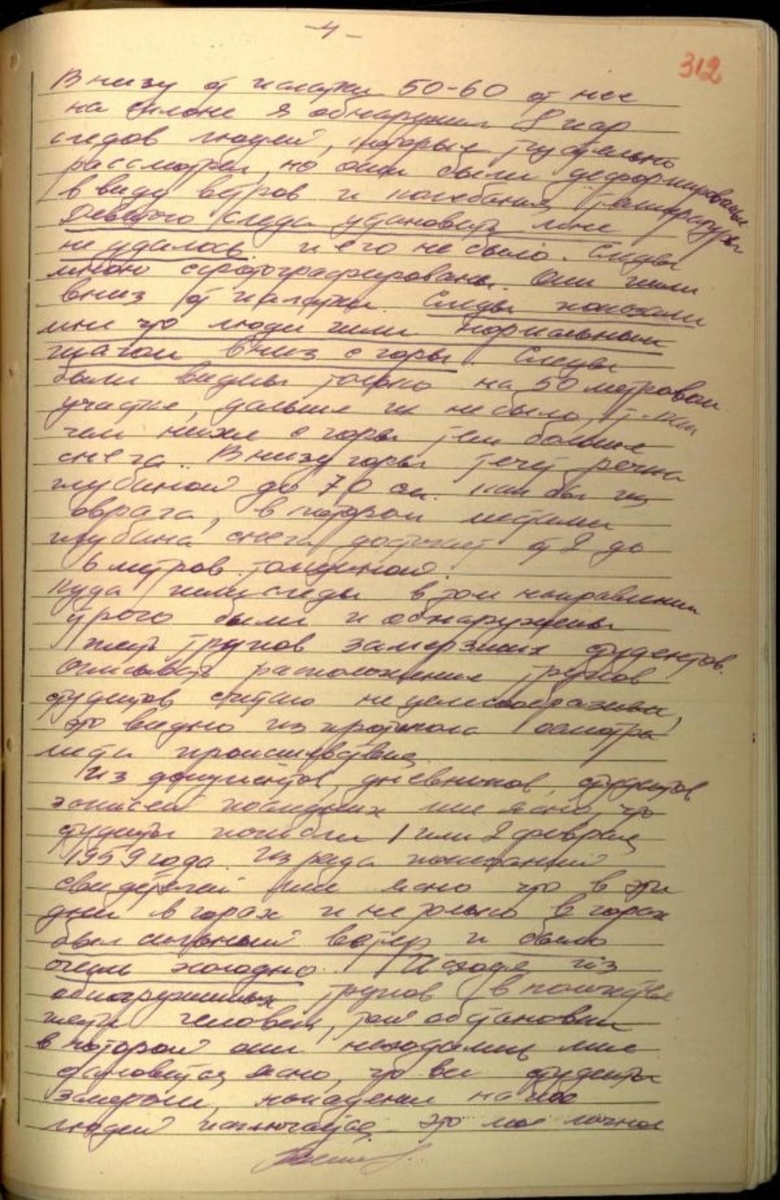 -4-
312
Внизу от палатки 50-60 от нее
на склоне я обнаружил 8 пар
следов людей, которые тщательно
рассмотрел, но они были деформированы
в виду ветров и колебания температуры
Девятого следа установить мне
не удалось. и его не было. Следы
мною сфотографированы. Они шли
вниз от палатки. Следы показали
мне что люди шли нормальным
шагом вниз с горы. Следы
были видны только на 50 метровом
участке, дальше их не было, т-как
чем ниже с горы тем больше
снега. Внизу горы течет речка
глубиной до 70 см. как бы из
оврага, в котором местами
глубина снега достигает от 2 до
6 метров толщиной.
Куда шли следы в том направлении
строго были и обнаружены
пять трупов замерзших студентов.
Описывать расположение трупов
студентов считаю не целесообразным,
это видно из протокола осмотра
места происшествия.
Из документов, дневников, студентов
записей последних мне ясно, что
студенты погибли 1 или 2 февраля
1959 года. Из ряда показаний
свидетелей мне ясно что в эти
дни в горах и не только в горах
был сильный ветер и было
очень холодно. Исходя из
обнаруженных трупов в количестве
пяти человек, той обстановки
в которой они находились мне
становится ясно, что все студенты
замерзли, нападение на них
людей исключается. это мое личное